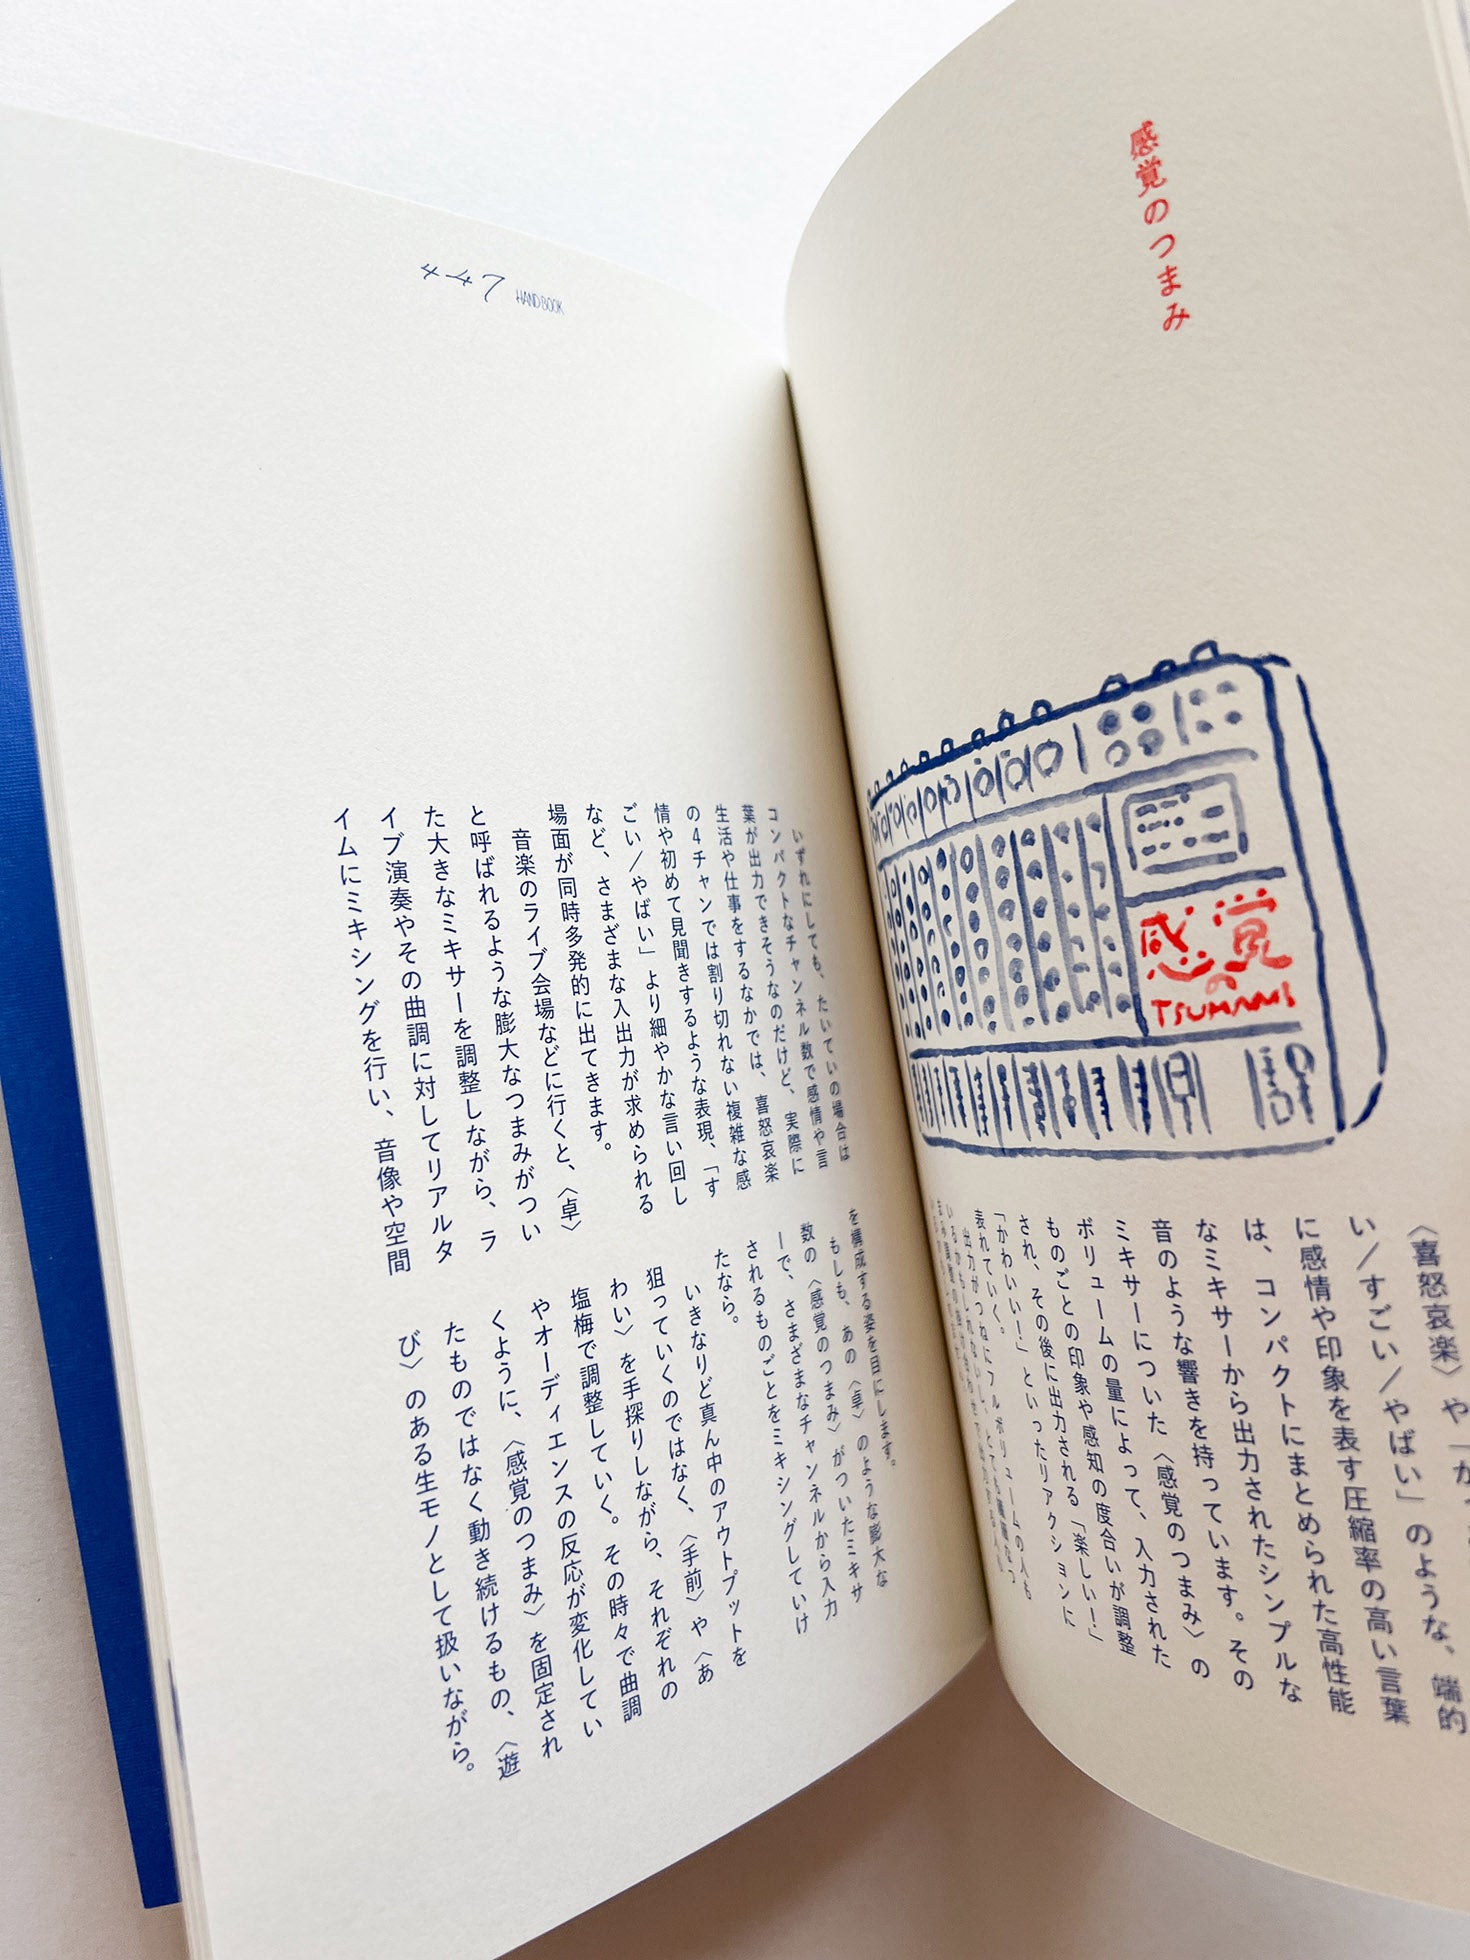 感覚のつまみ
感覚の
TSUMAMI
〈喜怒哀楽〉や「か
い／すごい／やばい」のような、端的
に感情や印象を表す圧縮率の高い言葉
は、コンパクトにまとめられた高性能
なミキサーから出力されたシンプルな
音のような響きを持っています。その
ミキサーについた〈感覚のつまみ〉の
ボリュームの量によって、入力された
ものごとの印象や感知の度合いが調整
され、その後に出力される「楽しい！」
「かわいい！」といったリアクションに
表れていく。
出力がつねにフルボリュームの人も
いるかもしれないし、とても繊細なつ
HANDBOOK
いずれにしても、たいていの場合は
コンパクトなチャンネル数で感情や言
葉が出力できそうなのだけど、実際に
生活や仕事をするなかでは、喜怒哀楽
の4チャンでは割り切れない複雑な感
情や初めて見聞きするような表現、「す
ごい／やばい」より細やかな言い回し
など、さまざまな入出力が求められる
場面が同時多発的に出てきます。
音楽のライブ会場などに行くと、〈卓〉
と呼ばれるような膨大なつまみがつい
た大きなミキサーを調整しながら、ラ
イブ演奏やその曲調に対してリアルタ
イムにミキシングを行い、音像や空間
を構成する姿を目にします。
もしも、あの〈卓〉のような膨大な
数の〈感覚のつまみ〉がついたミキサ
ーで、さまざまなチャンネルから入力
されるものごとをミキシングしていけ
たなら。
いきなりど真ん中のアウトプットを
狙っていくのではなく、〈手前〉や〈あ
わい〉を手探りしながら、それぞれの
塩梅で調整していく。その時々で曲調
やオーディエンスの反応が変化してい
くように、〈感覚のつまみ〉を固定され
たものではなく動き続けるもの、〈遊
び〉のある生モノとして扱いながら。